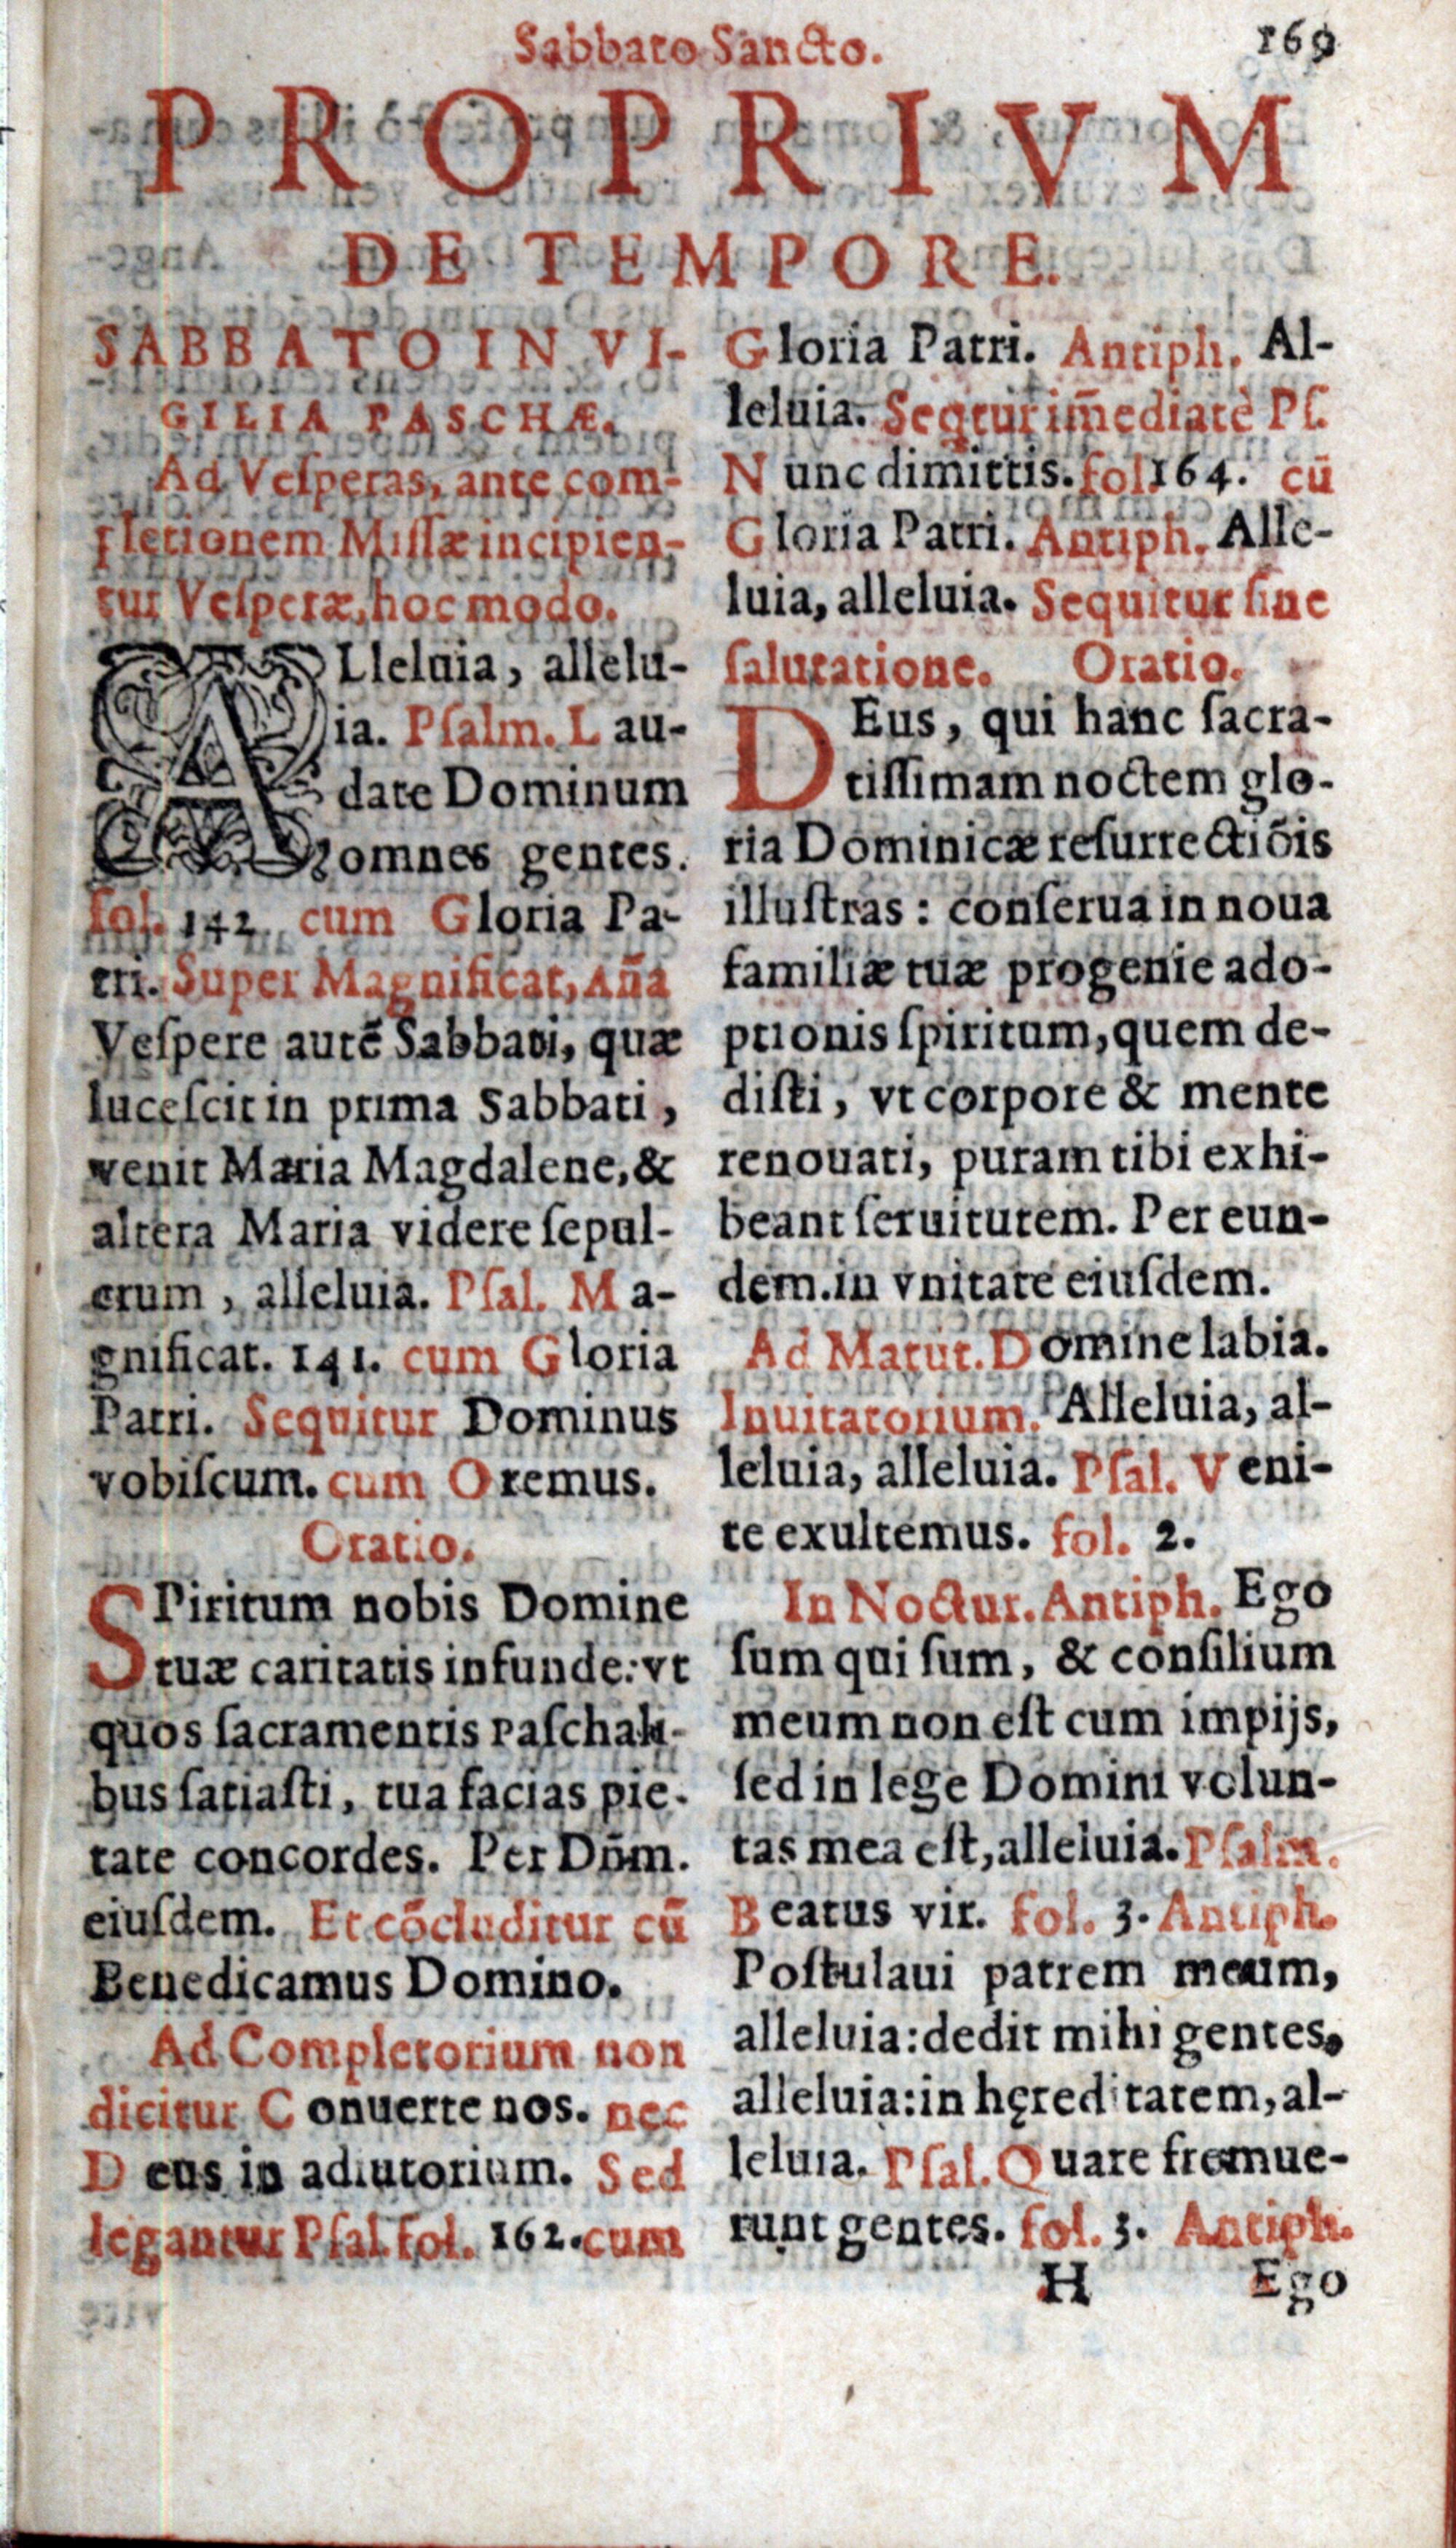 Sabbato Sancto. 169
PROPRIVM
DE TEMPORE.
SABBATO IN VI-
GILIA PASCHÆ.
Ad Veſperas, ante com-
pletionem Miſſæ incipien-
tur Veſperæ, hoc modo.
ALleluia, allelu-
ia. Pſalm. Lau-
date Dominum
omnes gentes.
fol. 142 cum Gloria Pa-
tri. Super Magnificat, Aña
Veſpere autē Sabbati, quæ
luceſcit in prima Sabbati,
venit Maria Magdalene, &
altera Maria videre ſepul-
crum, alleluia. Pſal. Ma-
gnificat. 141. cum Gloria
Patri. Sequitur Dominus
vobiſcum. cum Oremus.
Oratio.
SPiritum nobis Domine
tuæ caritatis infunde: vt
quos ſacramentis Paſchali-
bus ſatiaſti, tua facias pie-
tate concordes. Per Dñm.
eiuſdem. Et cōcluditur cū
Benedicamus Domino.
Ad Completorium non
dicitur Conuerte nos. nec
Deus in adiutorium. Sed
legantur Pſal. fol. 162. cum
Gloria Patri. Antiph. Al-
leluia. Seqtur im̄ediatè Pſ.
Nunc dimittis. fol. 164. cū
Gloria Patri. Antiph. Alle-
luia, alleluia. Sequitur ſine
ſalutatione. Oratio.
DEus, qui hanc ſacra-
tiſſimam noctem glo-
ria Dominicæ reſurrectiōis
illuſtras: conſerua in noua
familiæ tuæ progenie ado-
ptionis ſpiritum, quem de-
diſti, vt corpore & mente
renouati, puram tibi exhi-
beant ſeruitutem. Per eun-
dem. in vnitate eiuſdem.
Ad Matut. Domine labia.
Inuitatorium. Alleluia, al-
leluia, alleluia. Pſal. Veni-
te exultemus. fol. 2.
In Noctur. Antiph. Ego
ſum qui ſum, & conſilium
meum non eſt cum impijs,
ſed in lege Domini volun-
tas mea eſt, alleluia. Pſalm.
Beatus vir. fol. 3. Antiph.
Poſtulaui patrem meum,
alleluia: dedit mihi gentes,
alleluia: in hęreditatem, al-
leluia. Pſal. Quare fremue-
runt gentes. fol. 3. Antiph.
H Ego